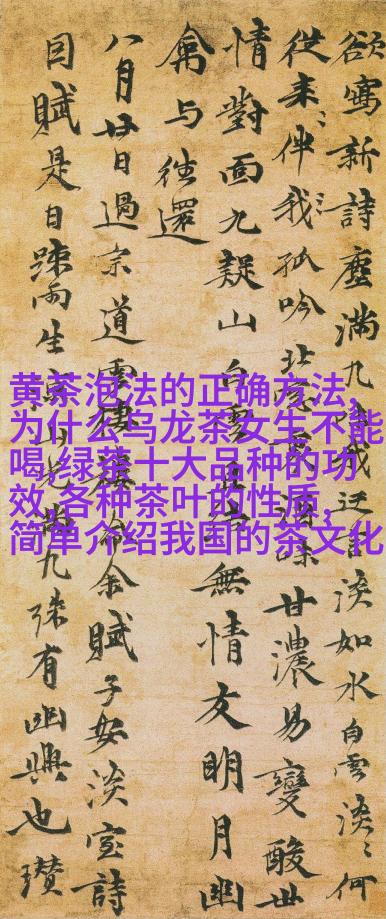 欲寫新詩塵滿九成言淡如水白雲淡〻何
從来〻伴我〻孤吟北味甘濃易變酸世
情對面九疑山白雲無情友明月幽
禽与往還
八月廿日過宗道雲棲余賦子安淡室詩
因賦是日疎雨生寒山光九殊有幽興也瓚
黄茶泡法的正确方法,
为什么乌龙茶女生不能
喝,绿茶十大品种的功
效,各种茶叶的性质,
简单介绍我国的茶文化